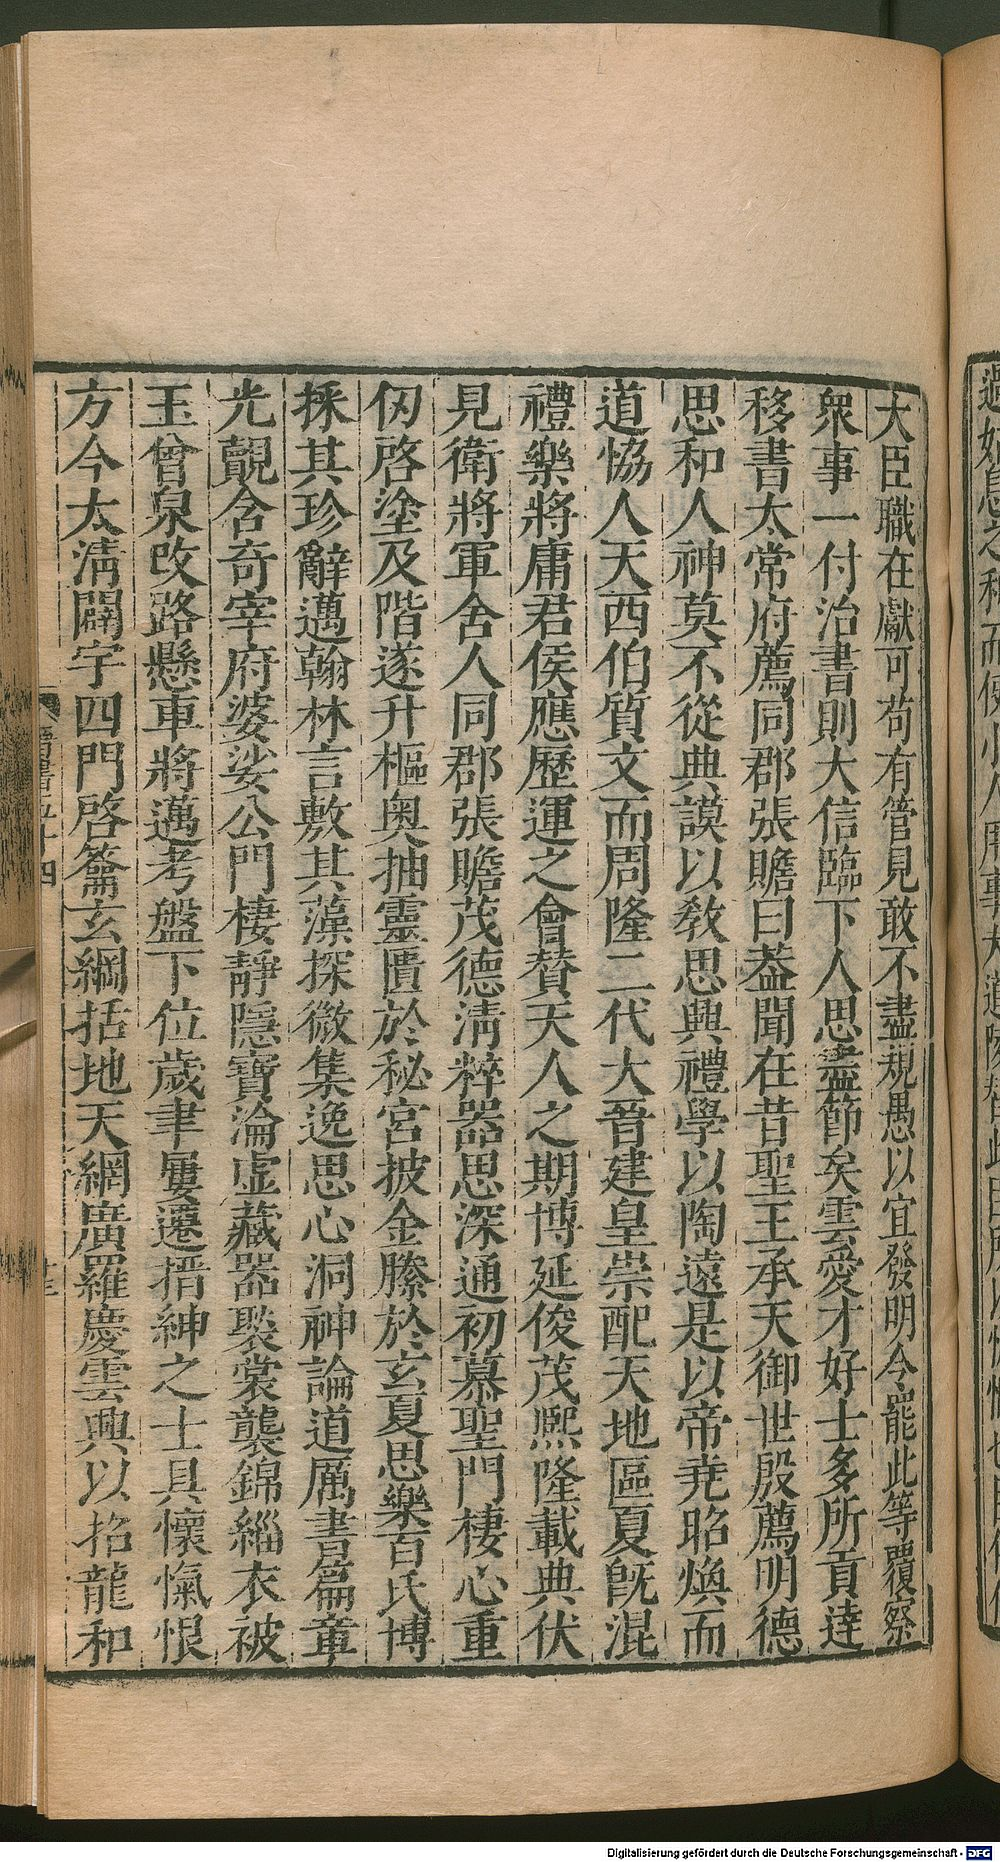 大臣職在獻可苟有管見敢不盡規愚以宜發明令罷此等覆察
衆事一付治書則大信臨下人思盡節矣雲愛才好士多所貢達
移書太常府薦同郡張贍曰蓋聞在昔聖王承天御世殷薦明德
思和人神莫不從典謨以敎思興禮學以陶遠是以帝堯昭煥而
道恊人天西伯質文而周隆二代大晉建皇崇配天地區夏旣混
禮樂將庸君侯應歷運之會贊天人之期博延俊茂熙隆載典伏
見衛將軍舍人同郡張贍茂德淸粹器思深通初慕聖門棲心重
仞啓塗及階遂升樞奧抽靈匱於秘宮披金縢於玄夏思樂百氏博
採其珍辭邁翰林言敷其藻探微集逸思心洞神論道厲書篇章
光覿含奇宰府婆娑公門棲靜隱寶淪虛藏器褧裳襲錦緇衣被
玉曾泉改路懸車將邁考盤下位歲聿屢遷搢紳之士具懷愾恨
方今太淸闢宇四門啓籥玄綱括地天網廣羅慶雲興以招龍和
晉書五十四
十三
Digitalisierung gefördert durch die Deutsche Forschungsgemeinschaft - DFG